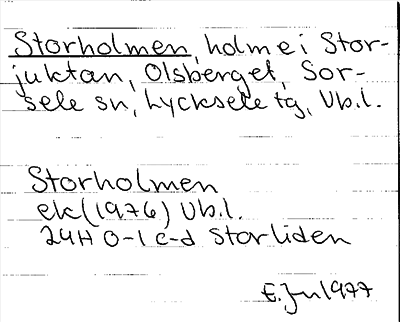 Storholmen, holme i Stor-
juktan, Olsberget, Sor-
sele sn, Lycksele tg, Vb.l.
Storholmen
ek (1976) Vb.l.
24H 0-1 c-d Storliden
E. Jn 1977